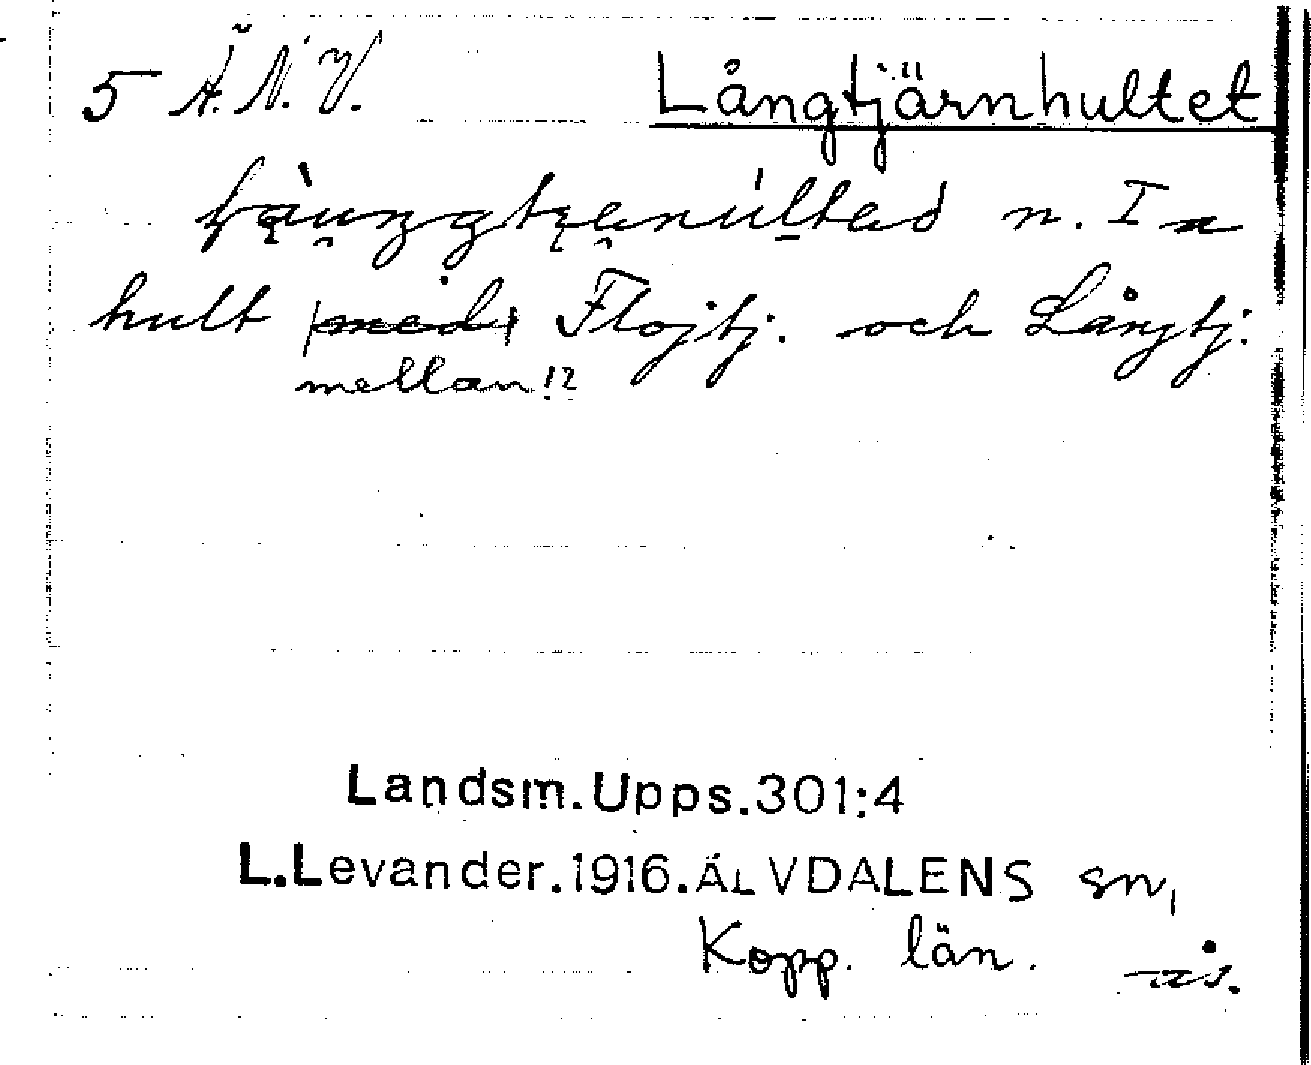 5 Ä. N. V. Långtjärnhultet
n. I a
hult med Flojtj. och Långtj.
mellan!?
Landsm.Upps.301:4
L.Levander.1916.ÄLVDALENS sn,
Kopp. län. ås.